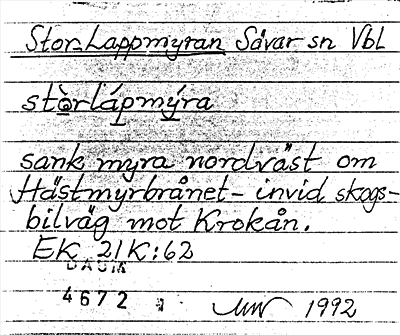 Stor-Lappmyran Sävar sn Vbl
stòrlápmýra
sank myra nordväst om
Hästmyrbrånet - invid skogs-
bilväg mot Krokån.
EK 21K:62
DAUM
4672
1992